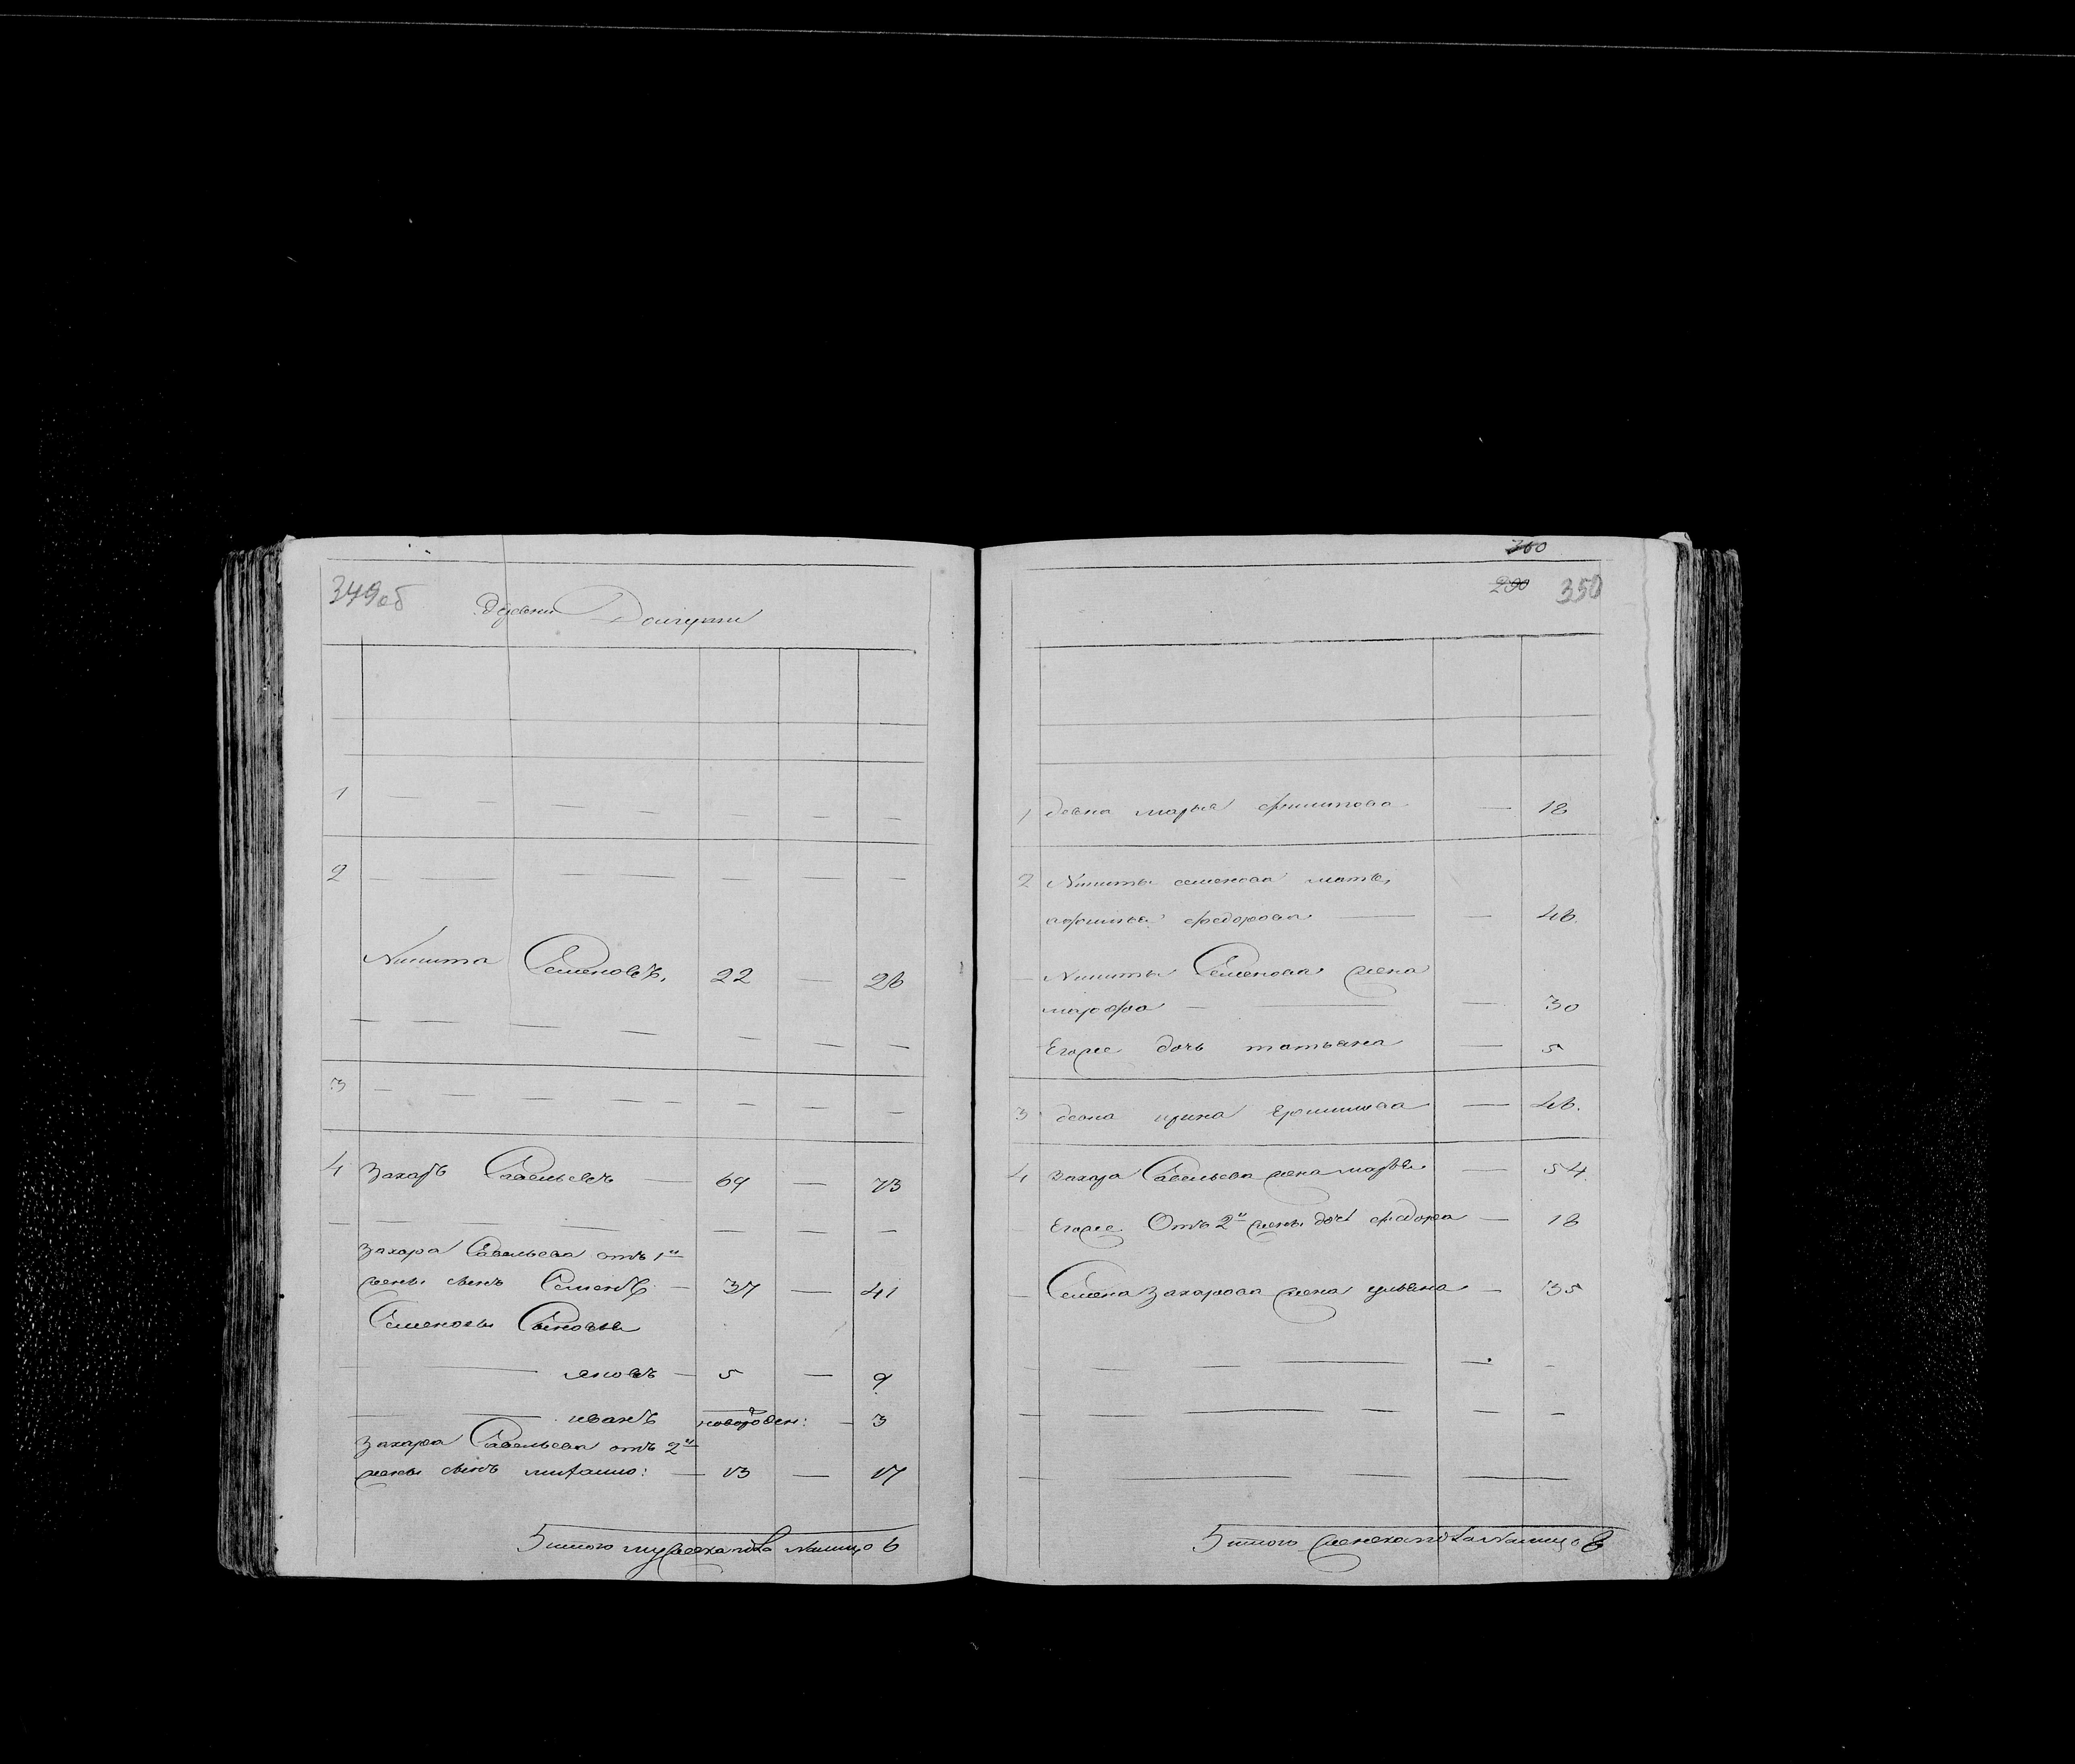 349об
Деревни
1 — — — — — — —
2 — — — — — — —
Никита Семеновъ, 22 — 26
— — — — — — —
3 — — — — — — —
4 Захаръ Савельевъ — 69 — 73
— — — — — — —
Захара Савельева отъ 1й
жены сынъ Семенъ — 37 — 41
Семеновы Сыновья
— яковъ — 5 — 9
— — иванъ новорожден: — 3
Захара Савельева отъ 2й
жены сынъ михаило: — 13 — 17
итого мужеска пола налицо 6
360
200 350
1 девка марья филипова — 18
2 Никиты семенова мать,
афимья федорова — — 46.
— Никиты Семенова жена
марфа — — — 30
Егоже дочь татьяна — 5
3 девка ирина — 46.
4 Захара Савельева жена марья — 54.
— Егоже Отъ 2й жены дочь федора — 18
— Семена Захарова жена ульяна — 35
— — — — —
— — — — — —
— — —
итого женска пола налицо 8